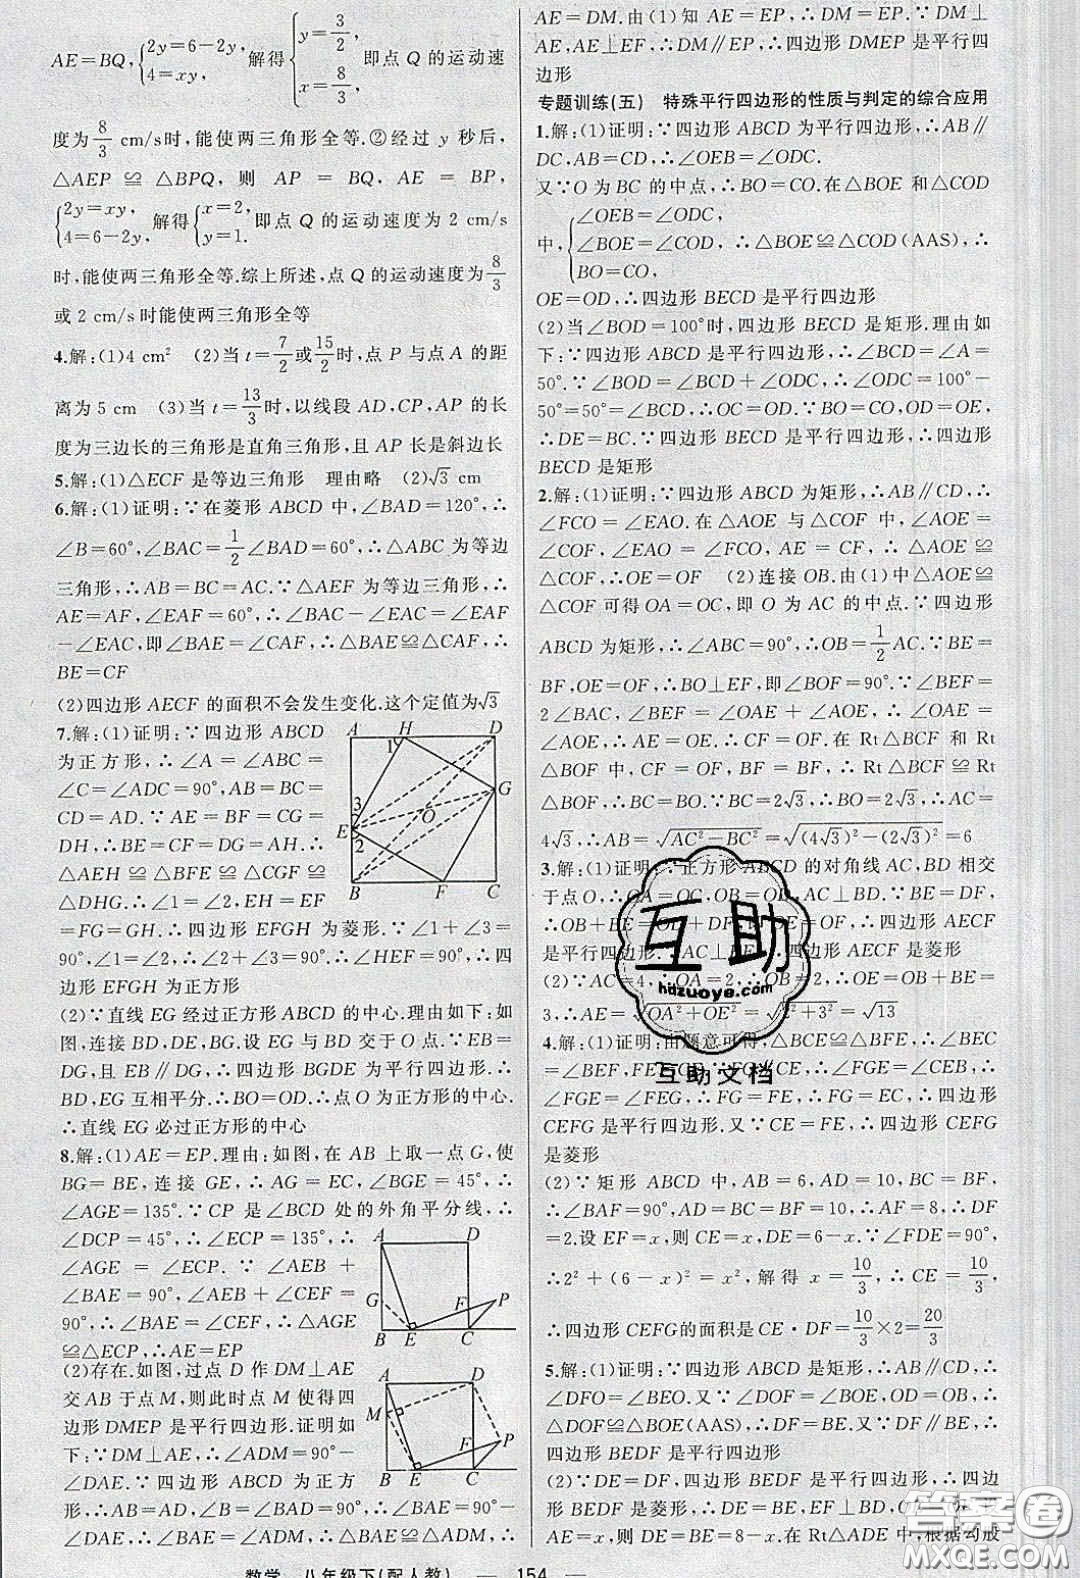 AE=BQ,{2y=6-2y, 4=xy, 解得{y=3/2, x=8/3, 即点 Q 的运动速
度为8/3 cm/s时,能使两三角形全等.②经过 y 秒后,
△AEP≌△BPQ, 则 AP=BQ, AE=BP,
{2y=xy, 4=6-2y, 解得{x=2, y=1. 即点 Q 的运动速度为 2 cm/s
时,能使两三角形全等.综上所述,点 Q 的运动速度为8/3
或2 cm/s时能使两三角形全等
4.解:(1)4 cm² (2)当 t=7/2或15/2时,点 P 与点 A 的距
离为 5 cm (3)当 t=13/3时,以线段 AD,CP,AP 的长
度为三边长的三角形是直角三角形,且 AP 长是斜边长
5.解:(1)△ECF 是等边三角形 理由略 (2)√3 cm
6.解:(1)证明:∵在菱形 ABCD 中,∠BAD=120°,∴
∠B=60°,∠BAC=1/2∠BAD=60°,∴△ABC 为等边
三角形,∴AB=BC=AC.∵△AEF 为等边三角形,∴
AE=AF,∠EAF=60°,∴∠BAC-∠EAC=∠EAF
-∠EAC,即∠BAE=∠CAF,∴△BAE≌△CAF,∴
BE=CF
(2)四边形 AECF 的面积不会发生变化.这个定值为√3
7.解:(1)证明:∵四边形 ABCD
为正方形,∴∠A=∠ABC=
∠C=∠ADC=90°,AB=BC=
CD=AD.∵AE=BF=CG=
DH,∴BE=CF=DG=AH.∴
△AEH≌△BFE≌△CGF≌
△DHG.∴∠1=∠2,EH=EF
=FG=GH.∴四边形 EFGH 为菱形.∵∠1+∠3=
90°,∠1=∠2,∴∠2+∠3=90°.∴∠HEF=90°.∴四
边形 EFGH 为正方形
(2)∵直线 EG 经过正方形 ABCD 的中心.理由如下:如
图,连接 BD,DE,BG.设 EG 与 BD 交于 O 点.∵BE=
DG,且 EB∥DG,∴四边形 BGDE 为平行四边形.∴
BD,EG 互相平分.∴BO=OD.∴点 O 为正方形的中心.
∴直线 EG 必过正方形的中心
8.解:(1)AE=EP.理由:如图,在 AB 上取一点 G,使
BG=BE,连接 GE,∴AG=EC,∠BGE=45°,∴
∠AGE=135°.∵CP 是∠BCD 处的外角平分线,∴
∠DCP=45°,∴∠ECP=135°,∴
∠AGE=∠ECP.∵∠AEB+
∠BAE=90°,∠AEB+∠CEF=
90°,∴∠BAE=∠CEF,∴△AGE
≌△ECP,∴AE=EP
(2)存在.如图,过点 D 作 DM⊥AE
交 AB 于点 M,则此时点 M 使得四
边形 DMEP 是平行四边形.证明如
下:∵DM⊥AE,∴∠ADM=90°-
∠DAE.∵四边形 ABCD 为正方
形,∴AB=AD,∠BAD=90°,∴∠BAE=90°-
∠DAE,∴∠ADM=∠BAE,∴△BAE≌△ADM,∴
A H D 1 G 3 E O 2 B F C
A D G F P B E C
A D M F P B E C
AE=DM.由(1)知 AE=EP,∴DM=EP.∵DM⊥
AE,AE⊥EF,∴DM∥EP,∴四边形 DMEP 是平行四
边形
专题训练(五) 特殊平行四边形的性质与判定的综合应用
1.解:(1)证明:∵四边形 ABCD 为平行四边形,∴AB∥
DC,AB=CD,∴∠OEB=∠ODC.
又∵O 为 BC 的中点,∴BO=CO.在△BOE 和△COD
中,{∠OEB=∠ODC, ∠BOE=∠COD, BO=CO, ∴△BOE≌△COD(AAS),∴
OE=OD,∴四边形 BECD 是平行四边形
(2)当∠BOD=100°时,四边形 BECD 是矩形.理由如
下:∵四边形 ABCD 是平行四边形,∴∠BCD=∠A=
50°.∵∠BOD=∠BCD+∠ODC,∴∠ODC=100°-
50°=50°=∠BCD,∴OC=OD.∵BO=CO,OD=OE,
∴DE=BC.∵四边形 BECD 是平行四边形,∴四边形
BECD 是矩形
2.解:(1)证明:∵四边形 ABCD 为矩形,∴AB∥CD,∴
∠FCO=∠EAO.在△AOE 与△COF 中,∠AOE=
∠COF,∠EAO=∠FCO,AE=CF,∴△AOE≌
△COF,∴OE=OF (2)连接 OB.由(1)中△AOE≌
△COF 可得 OA=OC,即 O 为 AC 的中点.∵四边形
ABCD 为矩形,∴∠ABC=90°,∴OB=1/2AC.∵BE=
BF,OE=OF,∴BO⊥EF,即∠BOF=90°.∵∠BEF=
2∠BAC,∠BEF=∠OAE+∠AOE,∴∠OAE=
∠AOE,∴AE=OE.∴CF=OF.在 Rt△BCF 和 Rt
△BOF 中,CF=OF,BF=BF,∴Rt△BCF≌Rt
△BOF,∴BC=BO.∵BC=2√3,∴BO=2√3,∴AC=
4√3,∴AB=√(AC²-BC²)=√((4√3)²-(2√3)²)=6
3.解:(1)证明:∵正方形 ABCD 的对角线 AC,BD 相交
于点 O,∴OA=OC,OB=OD,AC⊥BD.∵BE=DF,
∴OB+BE=OD+DF,即OE=OF,∴四边形 AECF
是平行四边形.∵AC⊥BD,∴四边形 AECF 是菱形
(2)∵AC=4,∴OA=2,∴OB=2,∴OE=OB+BE=
3,∴AE=√(OA²+OE²)=√(2²+3²)=√13
4.解:(1)证明:由题意可得,△BCE≌△BFE,∴∠BEC
=∠BEF,FE=CE.∵FG∥CE,∴∠FGE=∠CEB,∴
∠FGE=∠FEG,∴FG=FE,∴FG=EC,∴四边形
CEFG 是平行四边形.又∵CE=FE,∴四边形 CEFG
是菱形
(2)∵矩形 ABCD 中,AB=6,AD=10,BC=BF,
∴∠BAF=90°,AD=BC=BF=10,∴AF=8,∴DF
=2.设 EF=x,则 CE=x,DE=6-x.∵∠FDE=90°,
∴2²+(6-x)²=x²,解得 x=10/3,∴CE=10/3,
∴四边形 CEFG 的面积是 CE·DF=10/3×2=20/3
5.解:(1)证明:∵四边形 ABCD 是矩形,∴AB∥CD,∴
∠DFO=∠BEO.又∵∠DOF=∠BOE,OD=OB,∴
△DOF≌△BOE(AAS),∴DF=BE.又∵DF∥BE,∴
四边形 BEDF 是平行四边形
(2)∵DE=DF,四边形 BEDF 是平行四边形,∴四边
形 BEDF 是菱形,∴DE=BE,EF⊥BD
AE=x,则 DE=BE=8-x.在 Rt△ADE 中,根据勾股
数学 八年级下(配人教) — 154 —
互助
hdzuoye.com
互助文档
答案圈
MXQE.COM